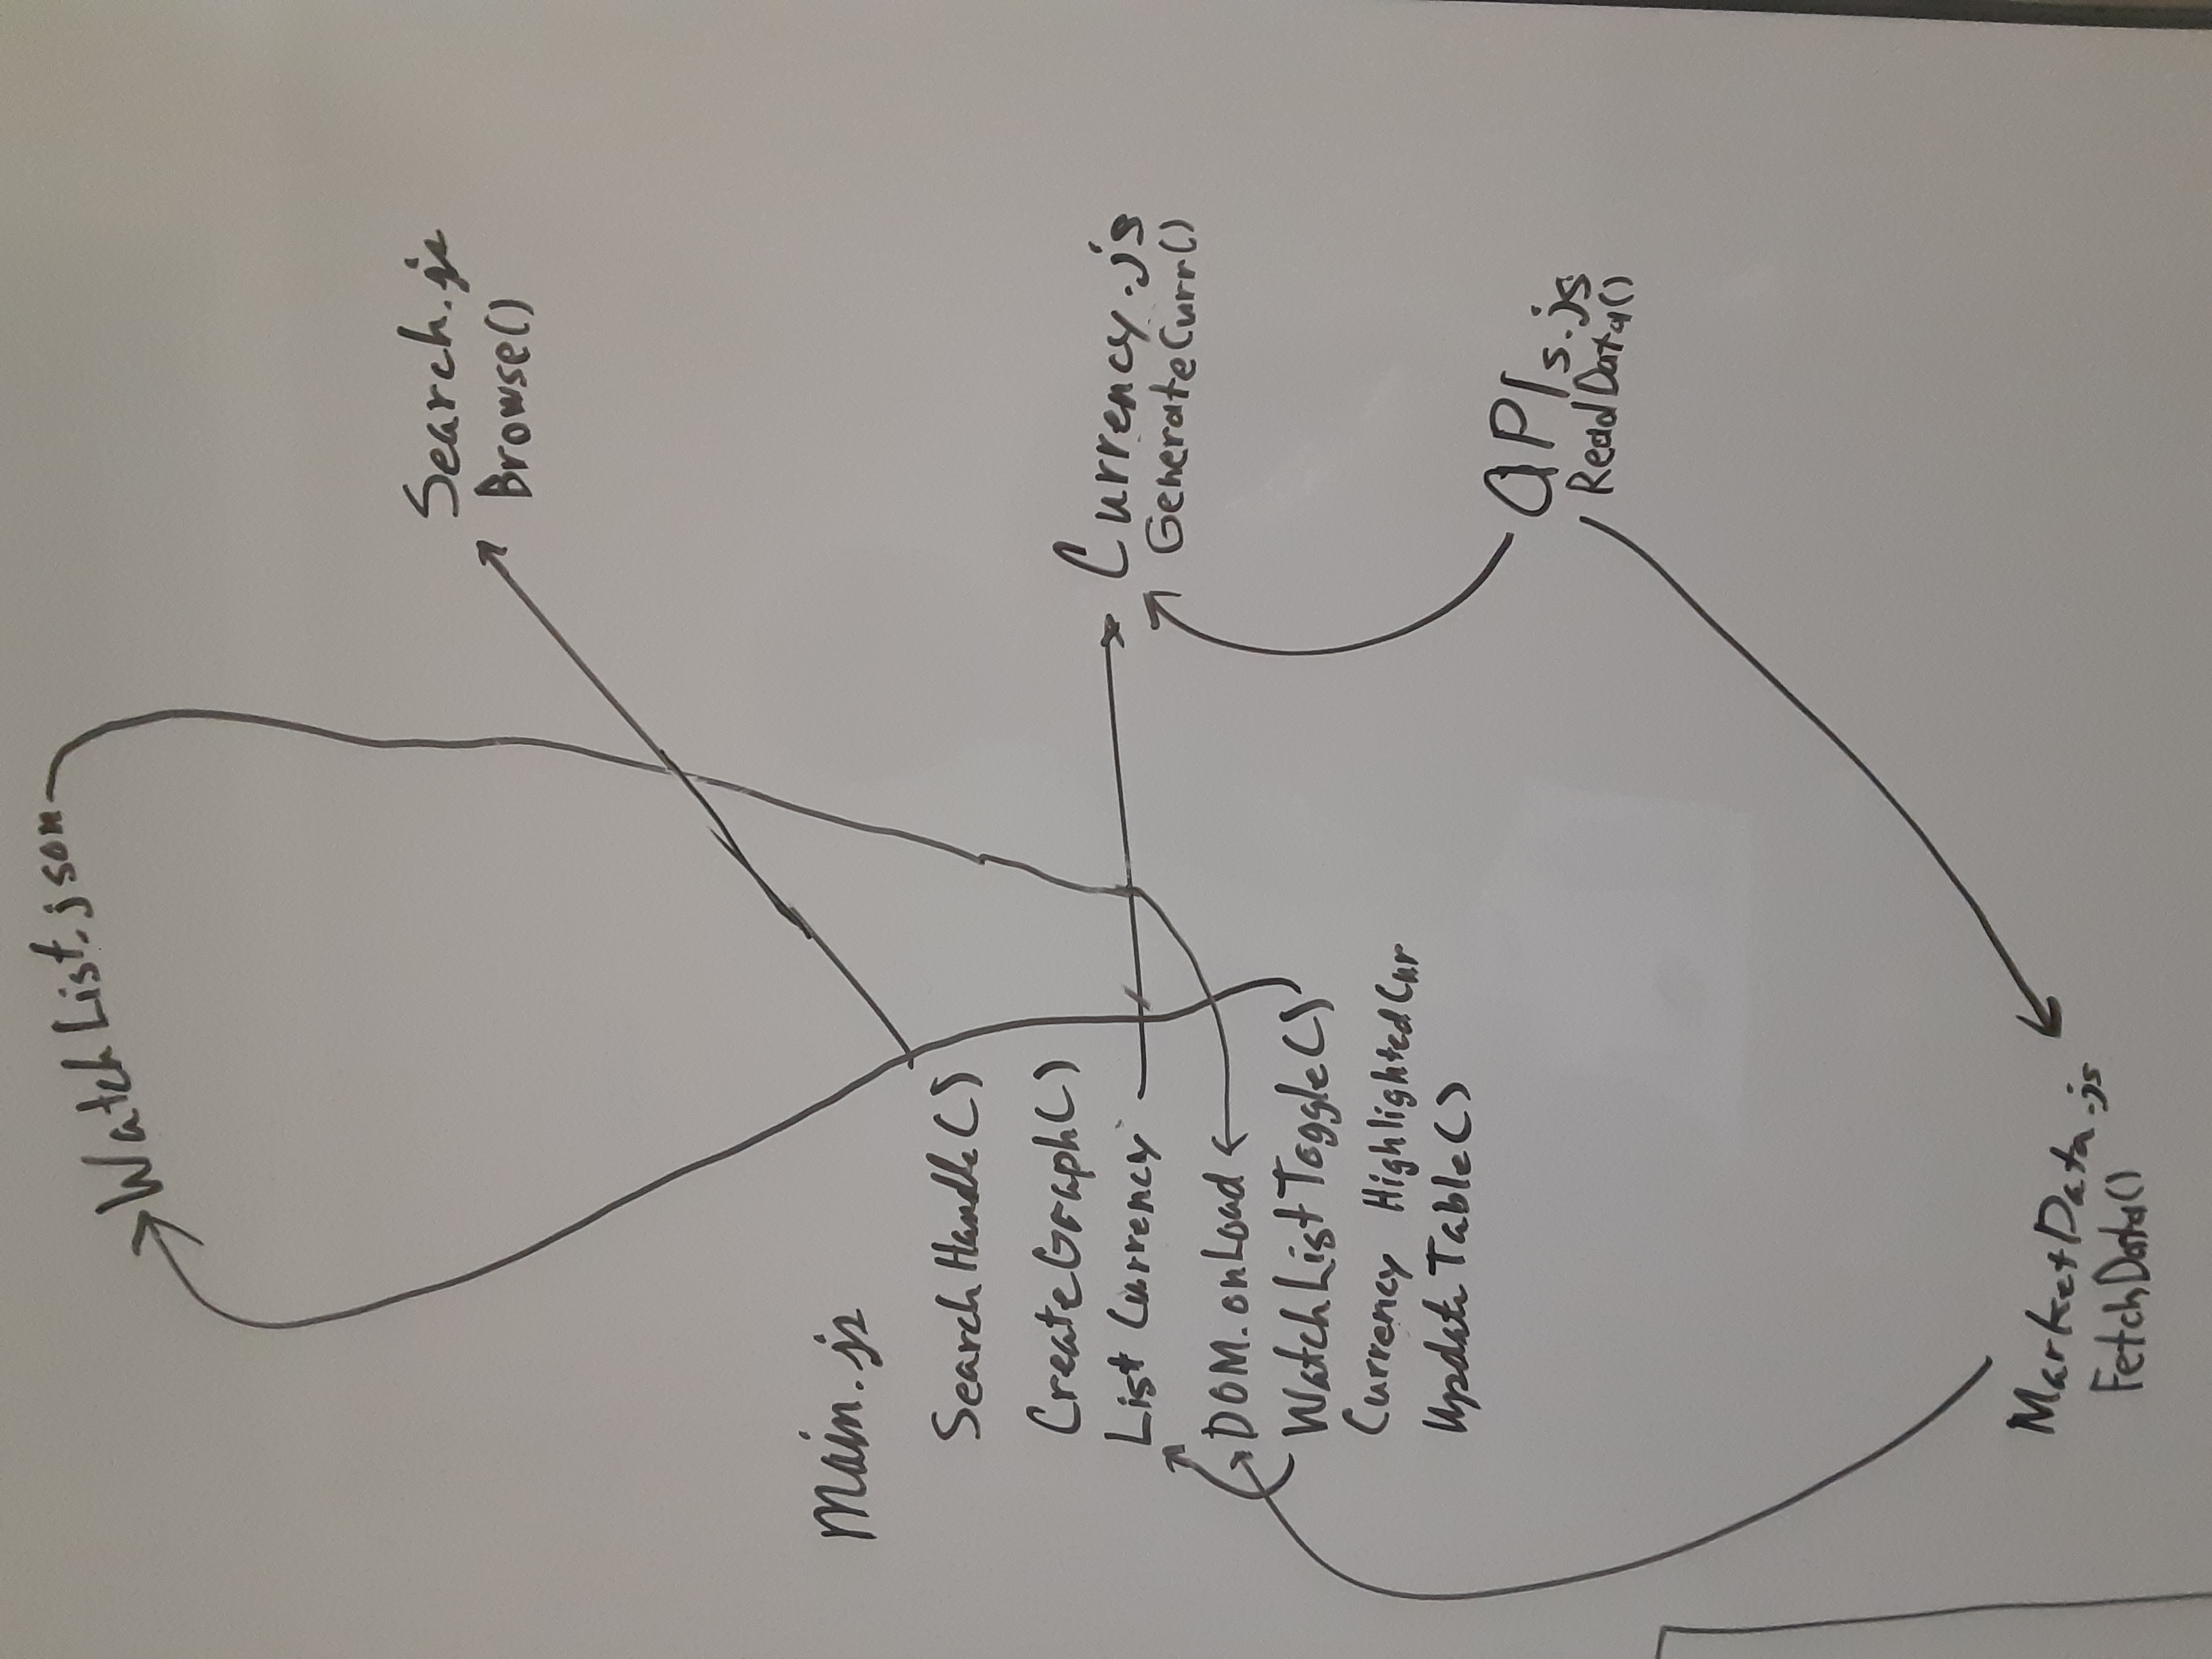 WatchList.json
Search.js
Browse()
Main.js
SearchHandle()
CreateGraph()
List Currency
DOM.onLoad
WatchListToggle()
Currency HighlightedCur
UpdateTable()
Currency.js
GenerateCurr()
APIs.js
ReadData()
MarketData.js
FetchData()